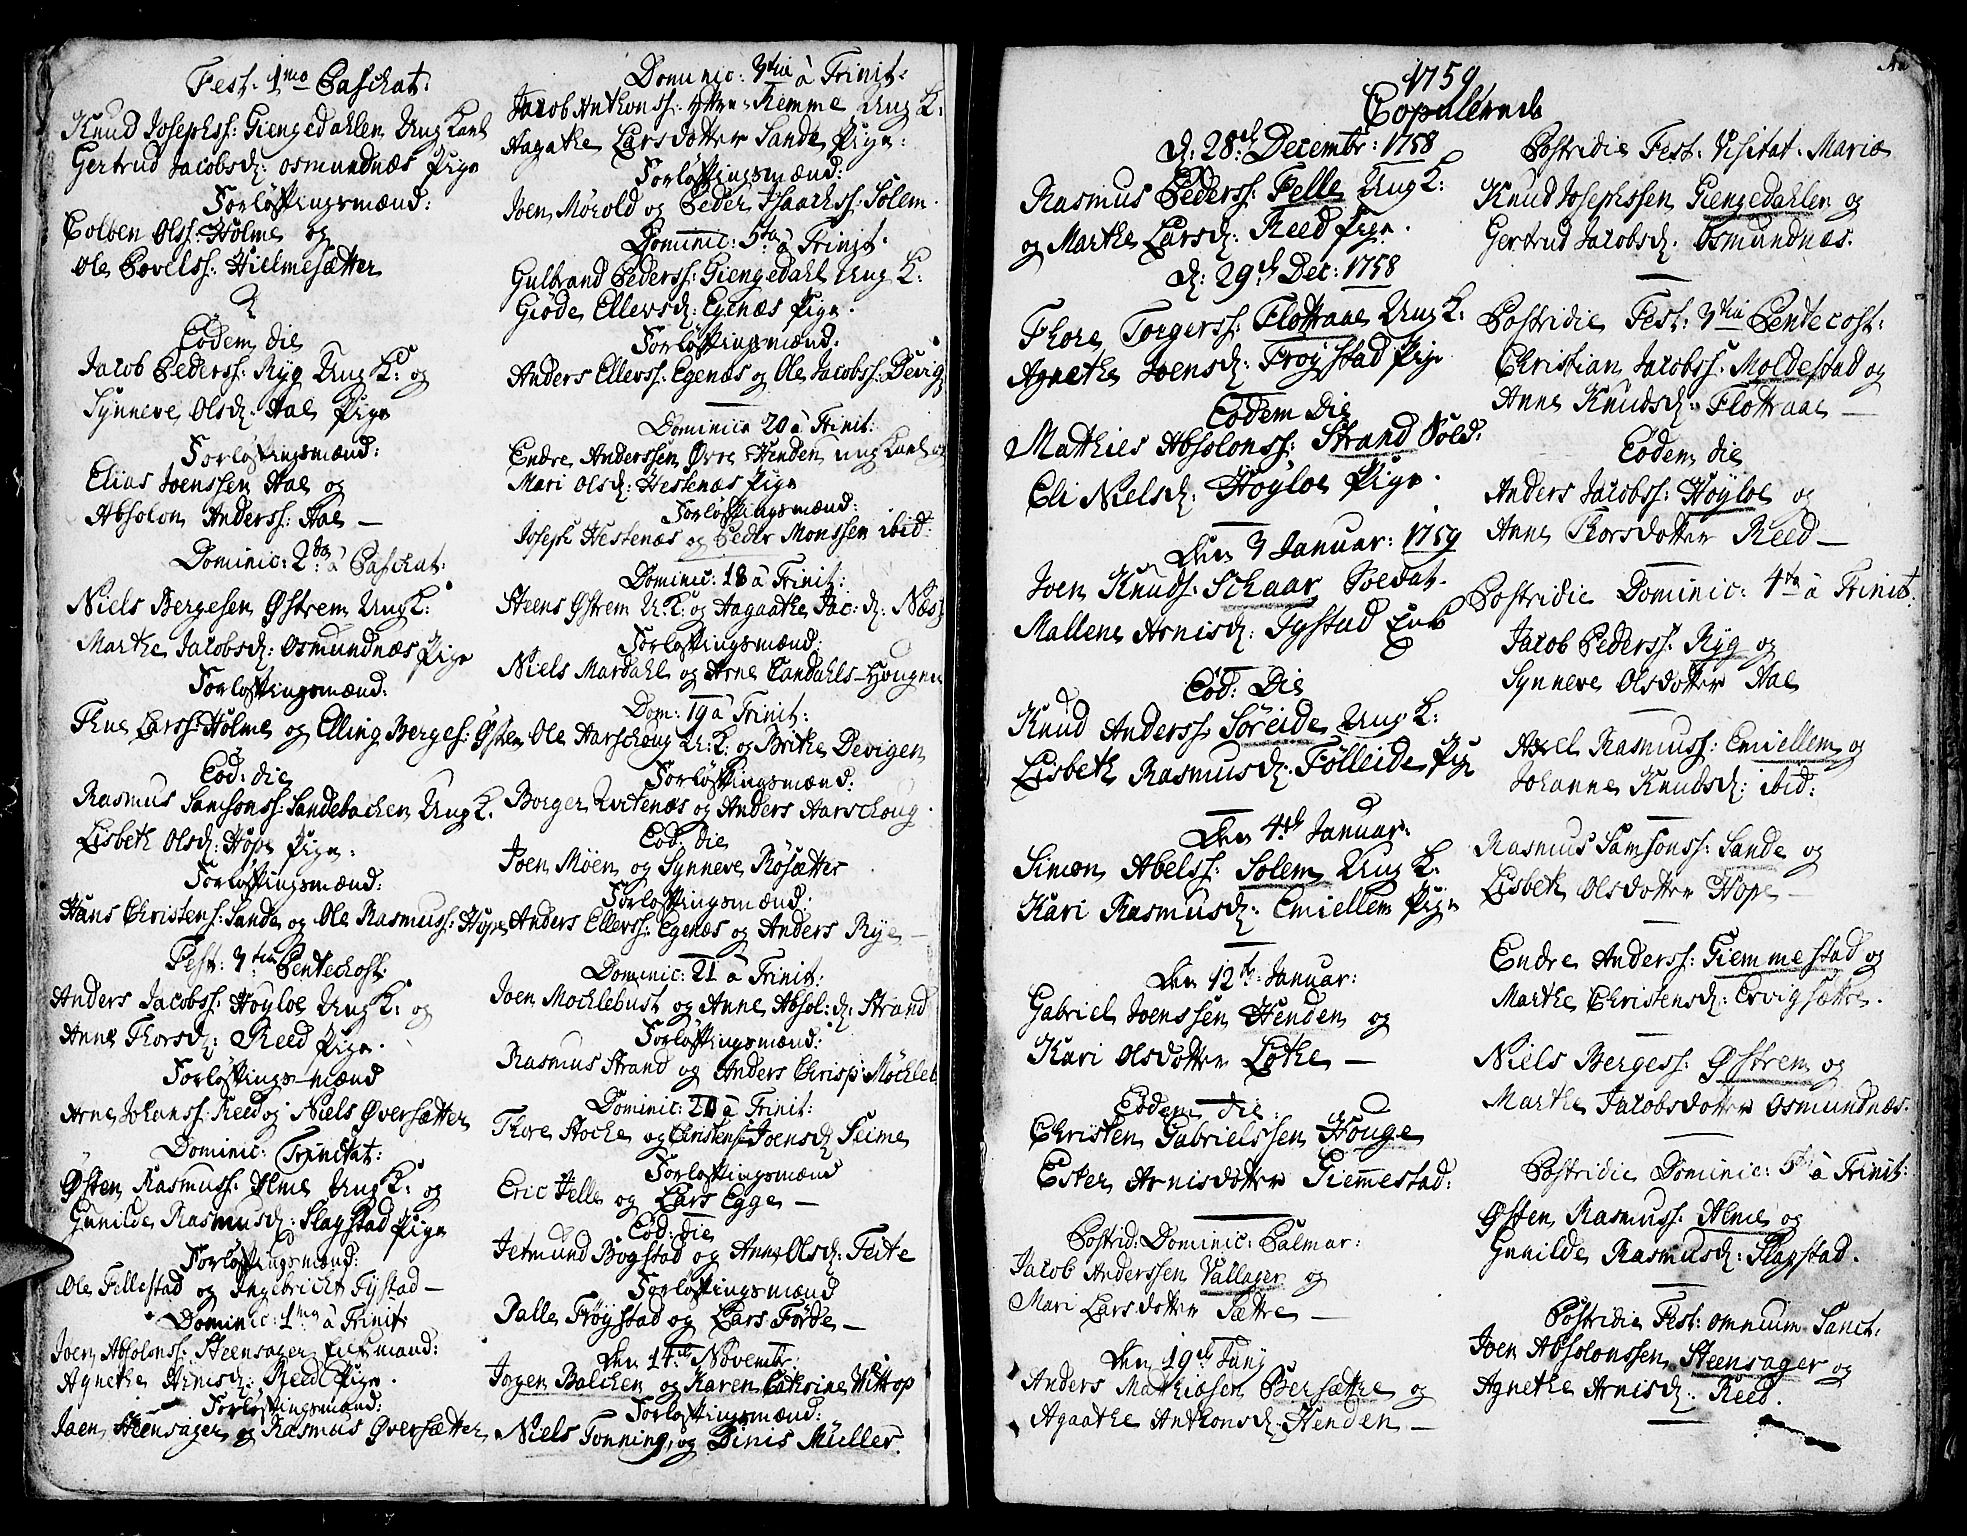 Fest: 1mo Paschat:
Knud Josephss: Giengedahlen Ung Karl
Gertrud Jacobsd: Osmundnæs Pige
Forløftingsmænd:
Colben Olss: Holme og
Ole Povelss: Hielmesætter
Eodem die
Jacob Pederss: Ryg Ung K: og
Synneve Olsd: Aae Pige
Forløftingsmænd:
Elias Joenssen Aae og
Absolon Anderss: Aae —
Dominic: 2da à Paschat:
Niels Bergesen Østrem Ung K:
Marthe Jacobsd: Osmundnæs Pige
Forløftingsmænd:
Thue Larss: Holme og Elling Berges: Østrem
Eod: die
Rasmus Samsonss: Sandebachen Ung K.
Lisbeth Olsd: Hope Pige:
Forløftingsmænd:
Hans Christens: Sande og Ole Rasmuss: Hope
Fest: 3tia Pentechost:
Anders Jacobss: Høyloe Ung K: og
Anne Thorsd: Reed Pige.
Forløftings-mænd
Arne Johanss: Reed og Niels Øversætter
Dominic: Trinitat:
Østen Rasmuss: Alme Ung K: og
Gunilde Rasmusd: Slagstad Pige
Forløftingsmænd:
Ole Fillestad og Ingebricht Fystad —
Dominic: 1ma à Trinit:
Joen Absolonss: Steensager Enkemand:
Agnethe Arnisd: Reed Pige.
Forløftingsmænd:
Joen Steensager og Rasmus Øversætter
Dominic: 3tia à Trinit:
Jacob Anthonss: Remme Ung K:
Aagathe Larsdotter Sande Pige:
Forløftingsmænd:
Joen Mórold og Peder Isaachss: Solem.
Dominic: 5ta à Trinit:
Gulbrand Pederss: Giengedahl Ung K:
Giøde Ellevsd: Egenæs Pige.
Forløftingsmænd:
Anders Ellevss: Egenæs og Ole Jacobss: Devig
Dominica 20 à Trinit:
Endre Anderssen Øvre Henden ung Karl og
Mari Olsd: Hestenæs Pige
Forløftingsmænd:
Joseph Hestenæs og Peder Monssen ibid:
Dominic: 18 à Trinit:
Steens Østrem U: K: og Aagaathe Jac: d: Næss
Forløftingsmænd:
Niels Mardahl og Arne Sandahls-Hougen
Dom: 19 à Trinit:
Ole Aarschoug U: K: og Brithe Devigen
Forløftingsmænd:
Borger Qvitenæs og Anders Aarschoug.
Eod: die
Joen Möen og Synneve Rösætter
Forløftingsmænd:
Anders Ellevss: Egenæs og Anders Rye —
Dominic: 21 à Trinit:
Joen Mochlebust og Anne Absol: d: Strand
Forløftingsmænd:
Rasmus Strand og Anders Chrisp: Möchleb
Dominic: à Trinit:
Thore Stoche og Joensd Seime
Forløftingsmænd
Eric Felle og Lars Egge —
Eod: die
Jetmund Bogstad og Anne Olsd: Feite
Forløftingsmænd
Palle Frøystad og Lars Förde —
Den 14de Novemb:
Jørgen Balchen og Karen Cathrine Wittop
Forløftingsmænd:
Niels Tonning, og Dinis Müller.
1759
Copulerede
d: 28de Decembr: 1758
Rasmus Pederss: Felle Ung K:
og Marthe Larsd: Reed Pige.
d: 29de Dec: 1758
Thore Torgerss: Flottraae Ung K:
Agnethe Joensd: Frøystad Pige
Eodem Die
Mathies Absolonss: Strand Sold:
Eli Nielsd: Høyloe Pige.
Den 3 Januar: 1759
Joen Knuds: Schaar Soldat.
Mallene Arnisd: Fystad Enke
Eod: Die
Knud Anderss: Söreide Ung K:
Lisbeth Rasmusd: Fölleide Pige
Den 4de Januar:
Simon Abelss: Solem Ung K:
Kari Rasmusd: Emiellem Pige
Den 12te Januar:
Gabriel Joenssen Henden og
Kari Olsdotter Löthe —
Eodem die:
Christen Gabrielssen Houge
Ester Arnisdotter Giemmestad:
Postrid: Dominic: Palmar:
Jacob Anderssen Vallager og
Mari Larsdotter Sætre —
Den 19de Juny
Anders Mathiasen Bersæthe og
Agaathe Anthonsd: Henden —
Postridie Fest: Visitat: Mariæ
Knud Josephssen Giengedahlen og
Gertrud Jacobsd: Osmundnæs.
Postridie Fest: 3tia Pentecost:
Christian Jacobss: Moldestad og
Anne Knudsd: Flottraae —
Eodem die
Anders Jacobss: Høyloe og
Anne Thorsdotter Reed —
Postridie Dominic: 4ta à Trinit:
Jacob Pederss: Ryg og
Synneve Olsdotter Aae
Axel Rasmuss: Emiellem og
Johanne Knudsd: ibid:
Rasmus Samsonss: Sande og
Lisbeth Olsdotter Hope —
Endre Anderss: Giemmestad og
Marthe Christensd: Ervigsætre.
Niels Bergess: Østrem og
Marthe Jacobsdotter Osmundnæs.
Postridie Dominic: 5ta à Trinit:
Østen Rasmuss: Alme og
Gunilde Rasmusd: Slagstad.
Postridie Fest: omnium Sanct:
Joen Absolonssen Steensager og
Agnethe Arnisd: Reed.